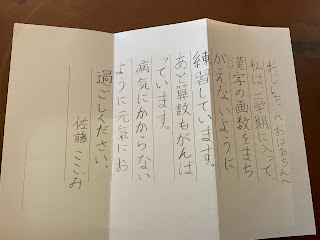 おじいちゃんへおばあちゃんへ
私は、二学期に入って、
漢字の画数をまち
がえないように
練習しています。
あと算数もがんば
っています。
病気にかからない
ように元気にお
過ごしください。
佐藤 ここみ